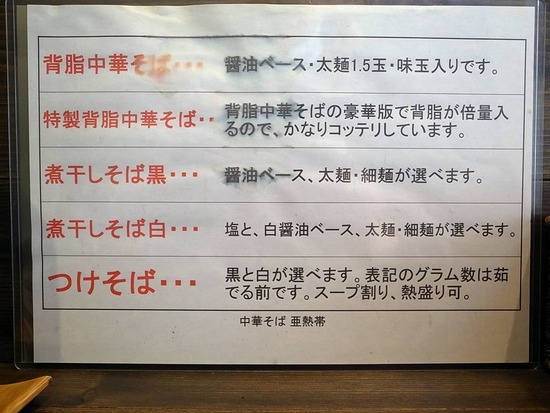 背脂中華そば・・・ 醤油ベース・太麺1.5玉・味玉入りです。
特製背脂中華そば・・ 背脂中華そばの豪華版で背脂が倍量入
るので、かなりコッテリしています。
煮干しそば黒・・・ 醤油ベース、太麺・細麺が選べます。
煮干しそば白・・・ 塩と、白醤油ベース、太麺・細麺が選べます。
つけそば・・・ 黒と白が選べます。表記のグラム数は茹
でる前です。スープ割り、熱盛り可。
中華そば 亜熱帯